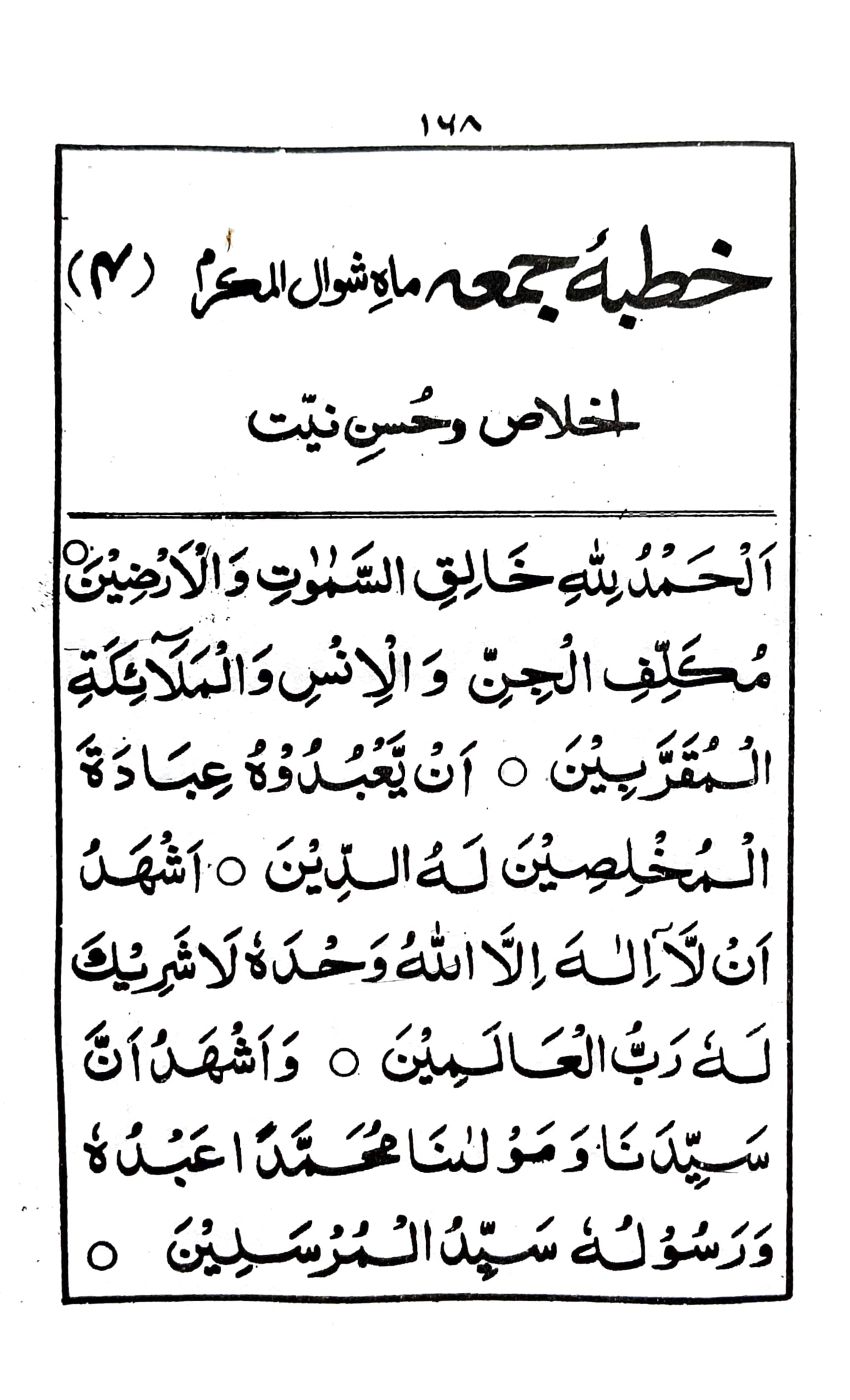 ۱۶۸
خطبۂ جمعہ ماہِ شوال المکرم (۴)
اخلاص و حُسنِ نیّت
اَلْحَمْدُ لِلّٰهِ خَالِقِ السَّمٰوٰتِ وَالْاَرْضِيْنَ ○
مُكَلِّفِ الْجِنِّ وَالْاِنْسِ وَالْمَلَآئِكَةِ
الْمُقَرَّبِيْنَ ○ اَنْ يَّعْبُدُوْهُ عِبَادَةَ
الْمُخْلِصِيْنَ لَهُ الدِّيْنَ ○ اَشْهَدُ
اَنْ لَّآ اِلٰهَ اِلَّا اللّٰهُ وَحْدَهٗ لَا شَرِيْكَ
لَهٗ رَبُّ الْعَالَمِيْنَ ○ وَاَشْهَدُ اَنَّ
سَيِّدَنَا وَمَوْلٰنَا مُحَمَّدًا عَبْدُهٗ
وَرَسُوْلُهٗ سَيِّدُ الْمُرْسَلِيْنَ ○